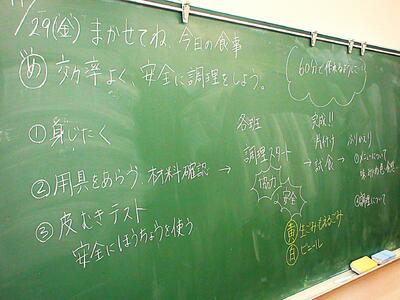 11/29(金) まかせてね、今日の食事
め 効率よく安全に調理をしよう。
60分で作れるように…!
①身じたく
②用具をあらう、材料確認 →
③皮むきテスト
安全にほうちょうを使う
各班
調理スタート →
協力
安全
完成!!
片付け
試食 →
ふりかえり
①メニューについて
味 切り 色
②調理について
黄 生ごみもえるごみ
白 ビニール